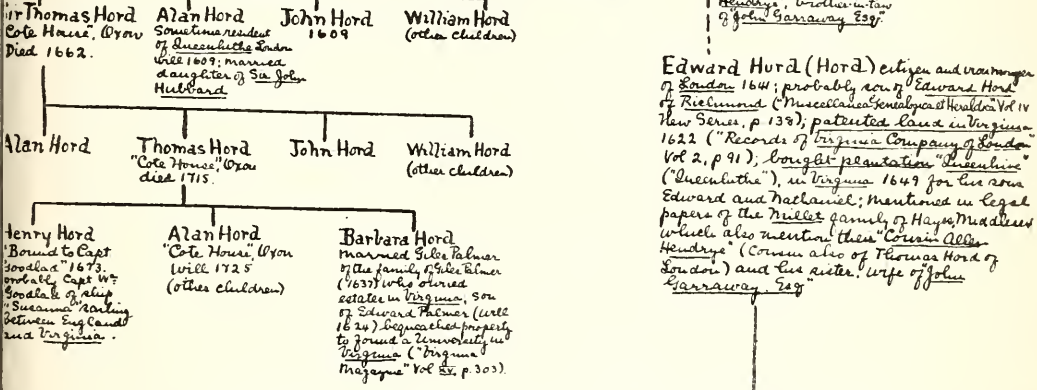 Sir Thomas Hord
Cote House", Oxon
Died 1662.
Alan Hord
Sometime resident
of Queenhithe London
Will 1609; married
daughter of Sir John
Hubbard
John Hord
1609
William Hord
(other children)
Hendrye, brother-in-law
of "John Garraway Esq".
Alan Hord
Thomas Hord
"Cote House", Oxon
died 1715.
John Hord
William Hord
(other children)
Henry Hord
"Bound to Capt
Goodlad" 1673.
probably Capt Wm
Goodlad of ship
"Susanna" sailing
between England
and Virginia.
Alan Hord
"Cote House", Oxon
Will 1725
(other children)
Barbara Hord
married Giles Palmer
of the family of Giles Palmer
(1637) who owned
estates in Virginia, son
of Edward Palmer (will
1624) bequeathed property
to found a University in
Virginia ("Virginia
Magazine" Vol XV, p. 303).
Edward Hurd (Hord) citizen and ironmonger
of London 1641; probably son of Edward Hord
of Richmond ("Miscellanea Genealogica et Heraldica" Vol IV
New Series, p 138); patented land in Virginia
1622 ("Records of Virginia Company of London"
Vol 2, p 91); bought plantation "Queenhive"
("Queenhithe"), in Virginia 1649 for his sons
Edward and Nathaniel; mentioned in legal
papers of the Millet family of Hayes, Middlesex
which also mention their "Cousin Allen
Hendrye" (Cousin also of Thomas Hord of
London) and his sister, wife of "John
Garraway. Esq"